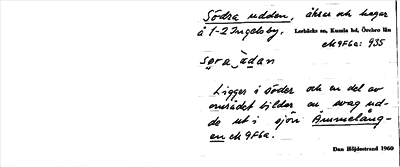 Södra udden, åkrar och hagar
å 1-2 Ingelsby. Lerbäcks sn, Kumla hd, Örebro län
ek 9F6a: 935
Ligger i söder och en del av
området bildar en svag ud-
de ut i sjön Åmmelång-
en ek 9F6a.
Dan Höjdestrand 1960